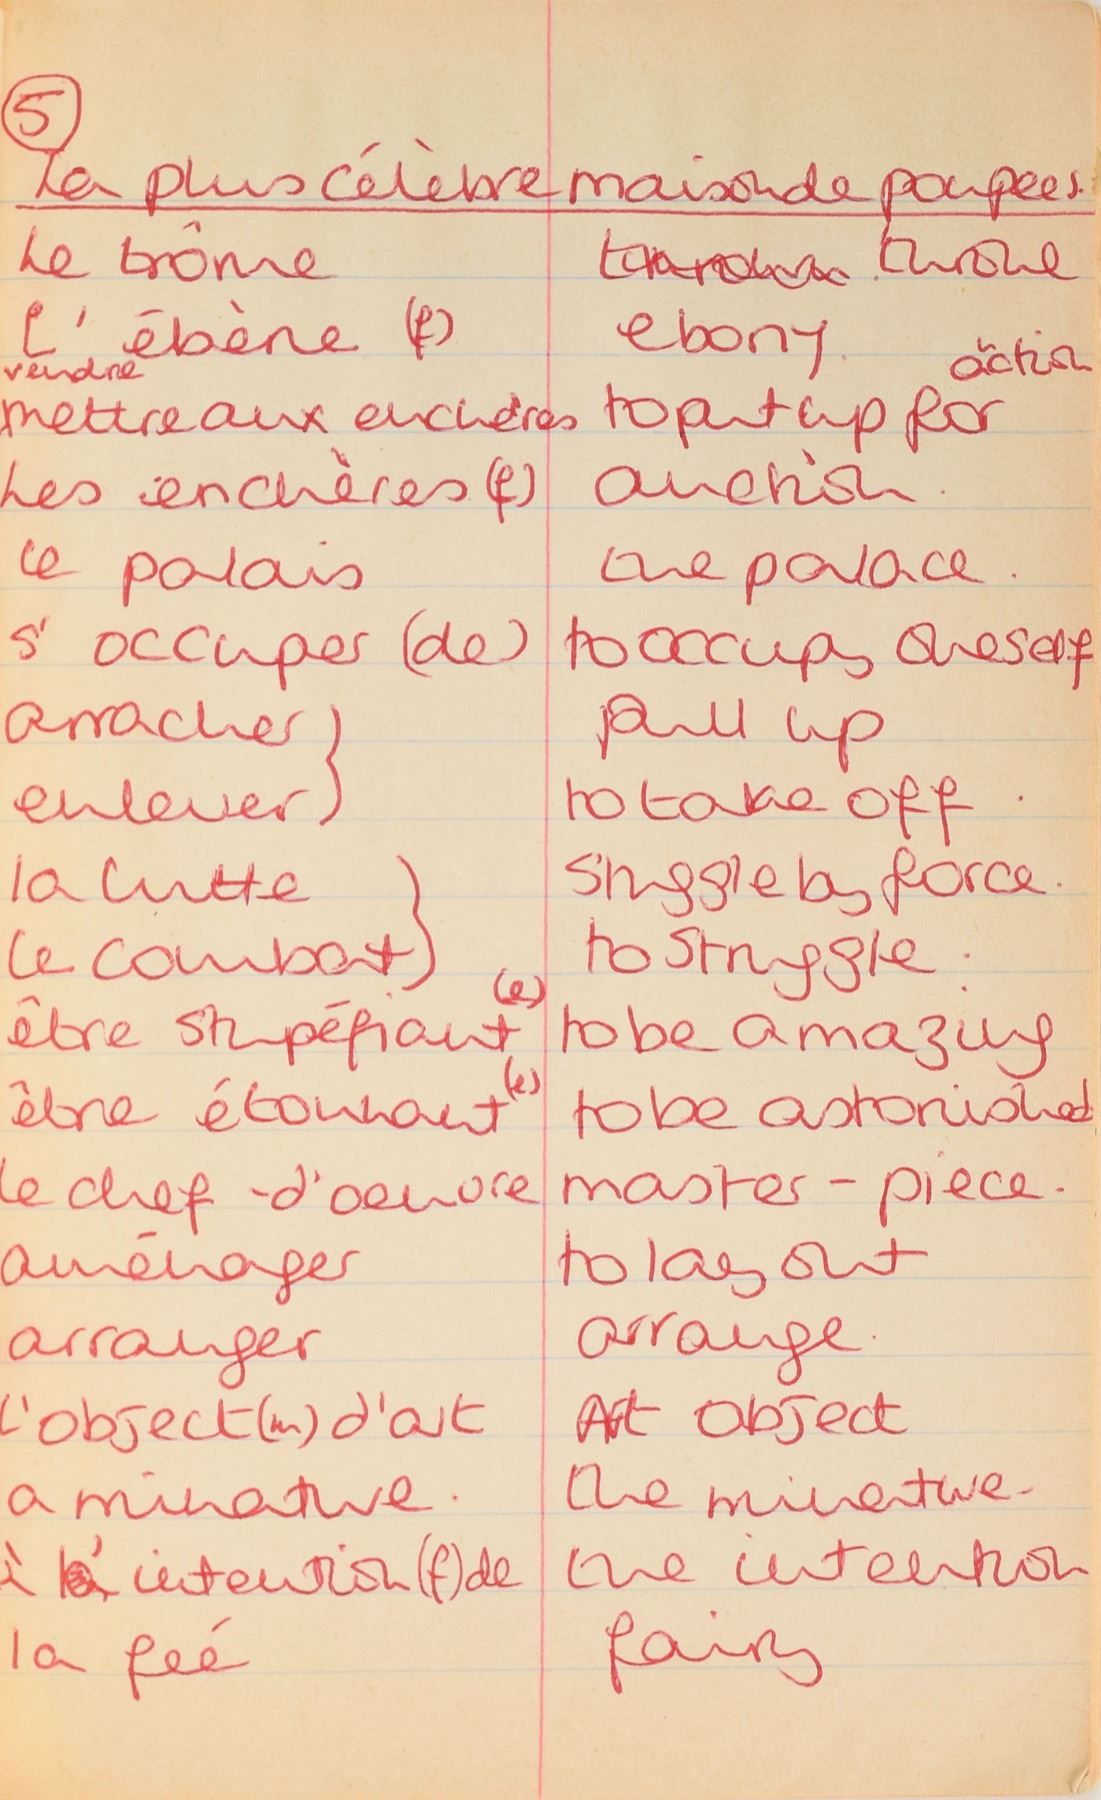 5
La plus célèbre maison de poupées.
Le trône throne
L'ébène (f) ebony.
vendre action
mettre aux enchères to put up for
Les enchères (f) auction.
le palais the palace.
s'occuper (de) to occupy oneself
arracher } pull up
enlever } to take off.
la lutte } struggle by force.
le combat } to struggle.
être stupéfiant (e) to be amazing
être étonnant (e) to be astonished
le chef-d'oeuvre master-piece.
aménager to lay out
arranger arrange.
l'object (m) d'art Art object
a minature. the minature.
à l'intention (f) de the intention
la feé fairy